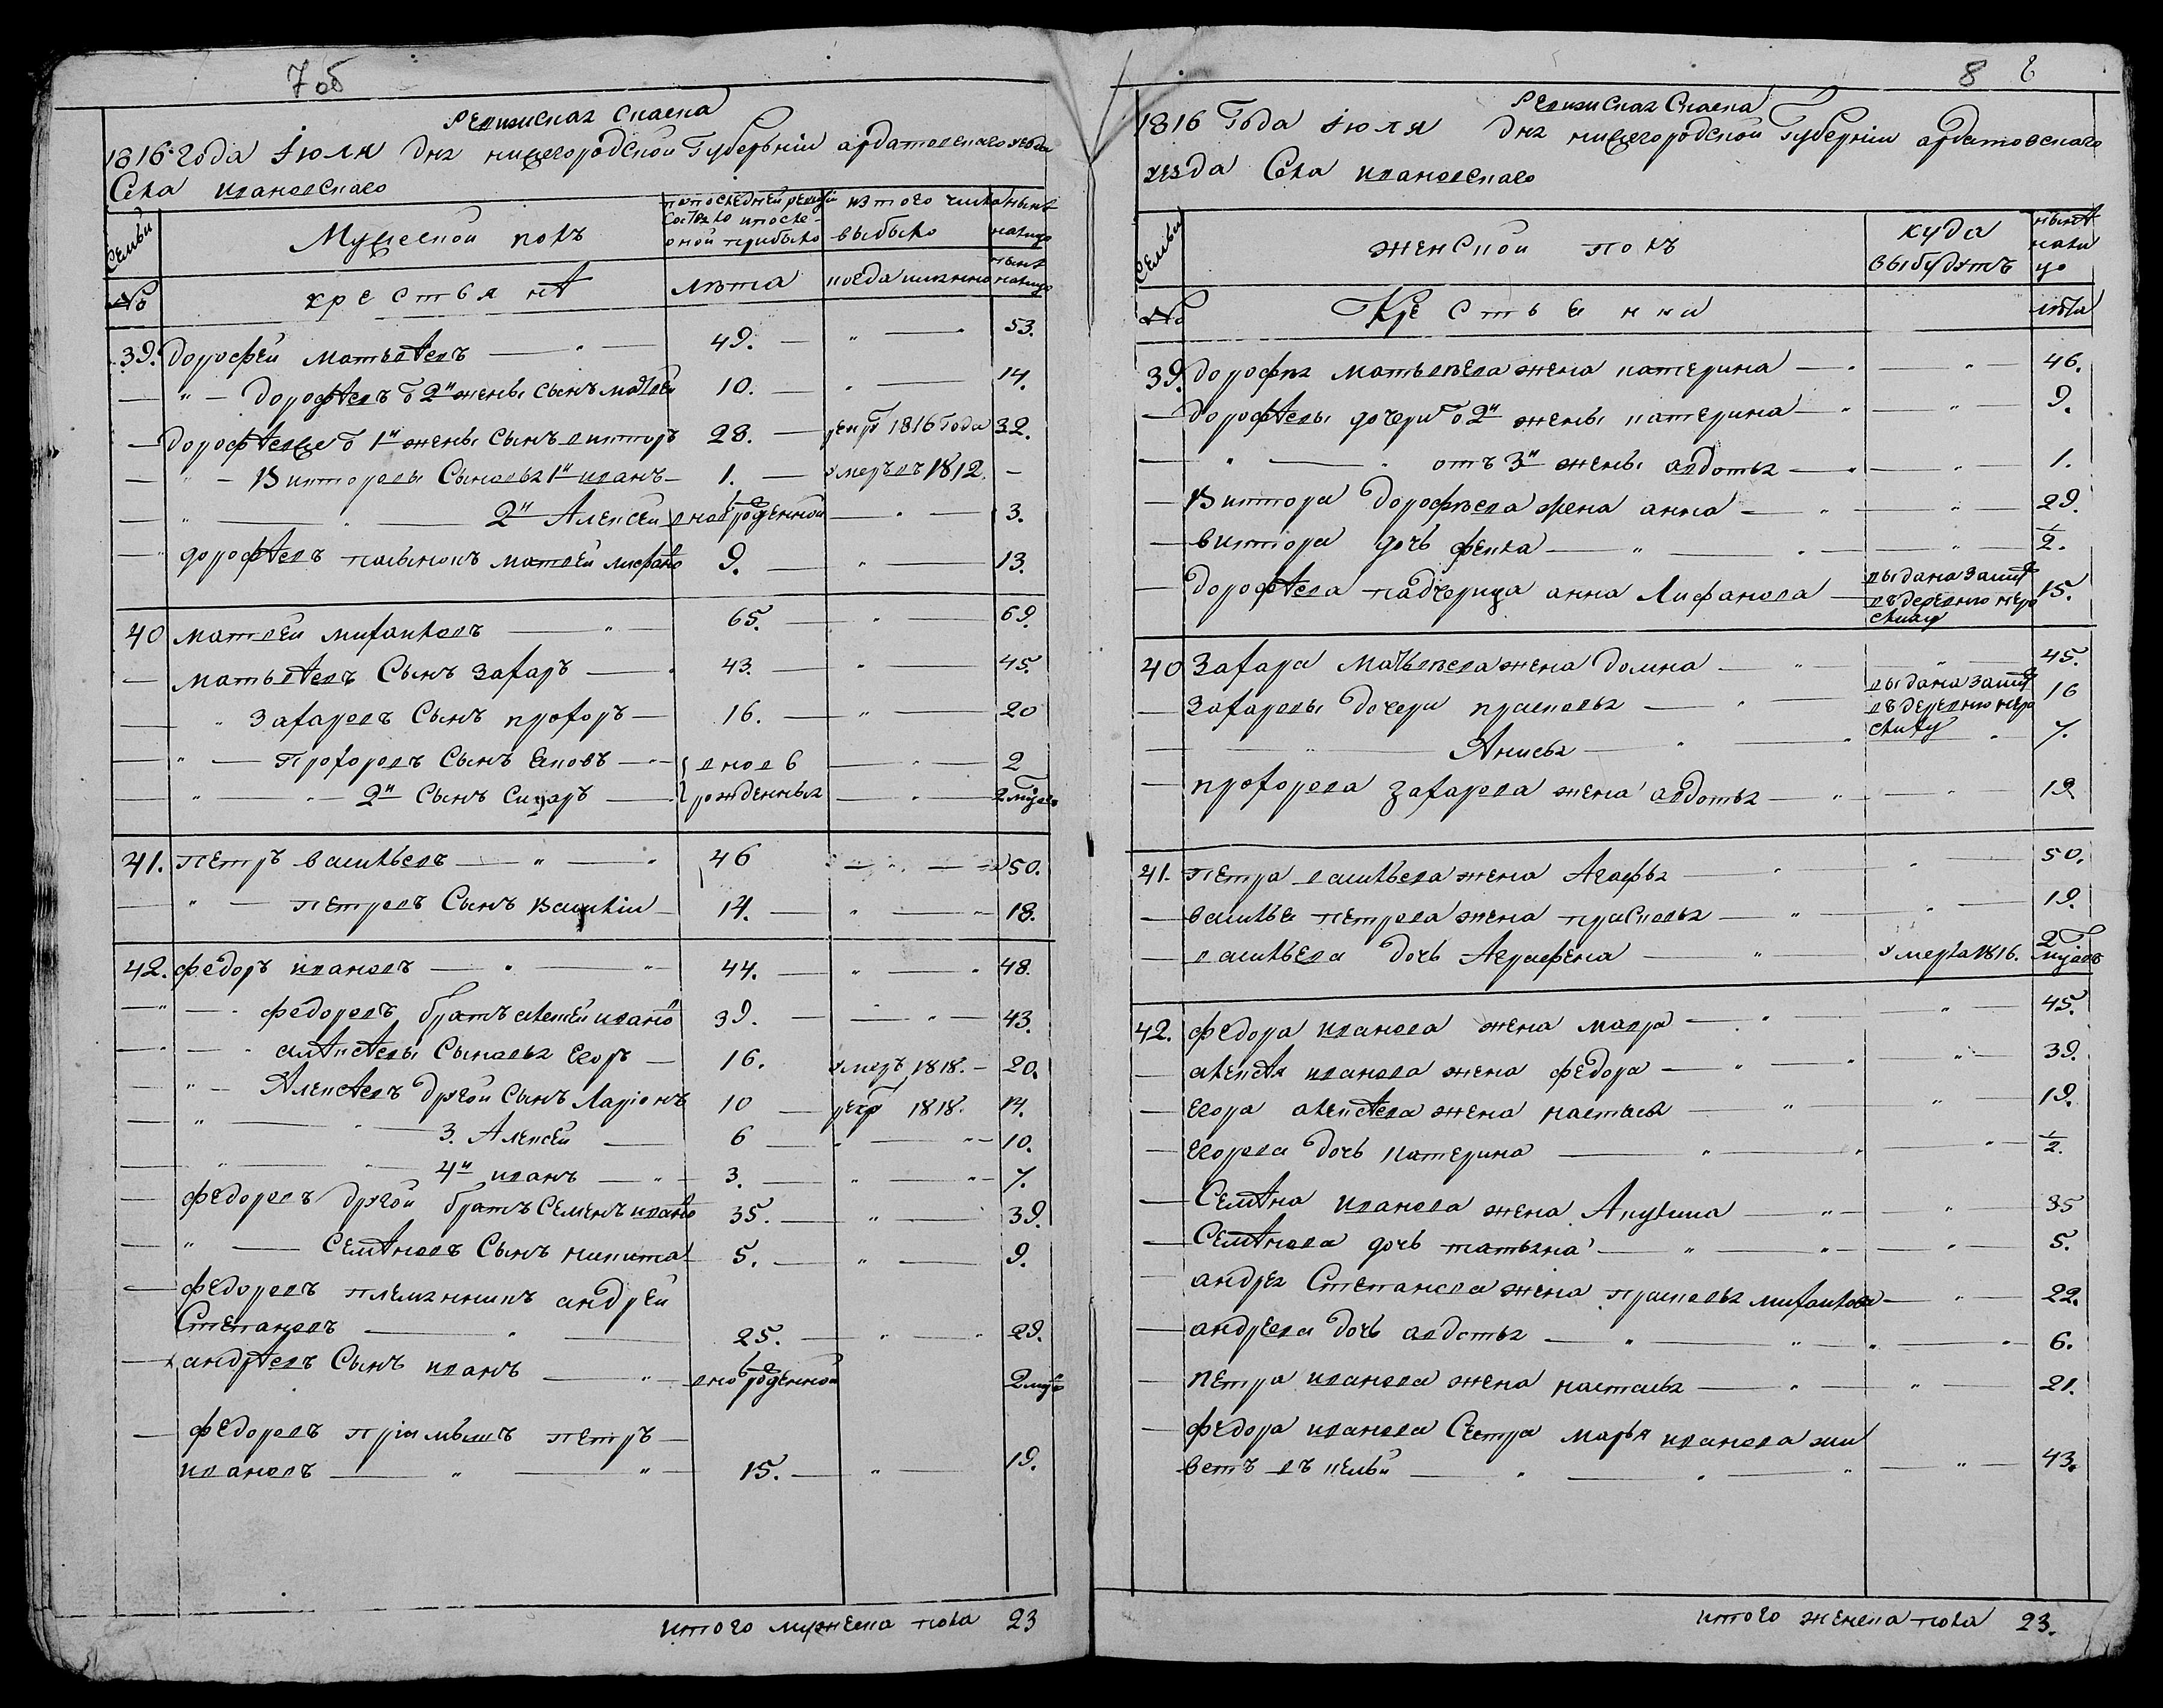 7 об
Ревижская Скаска
1816 года Июля дня нижегородской Губернии ардатовскаго уезда
Села ивановскаго
Семьи
Мужеской полъ
по последней ревизии состояло и после оной прибыло
из того числа выбыло
ныне налицо
№
крестьянѣ
лѣта
когда имянно
ныне налицо
39. дорофей матвѣевъ 49. 53.
дорофѣевъ о 2й жены Сынъ матвей 10. 14.
дорофѣевже о 1й жены Сынъ викторъ 28. рекрт 1816 Года 32.
Викторовы Сыновья 1й иванъ 1. умеръ въ 1812.
2й Алексей вновь рожденной 3.
дорофѣевъ пасынокъ матвей лифано 9. 13.
40 матвей михайловъ 65. 69.
матвѣевъ Сынъ Захаръ 43. 45.
Захаровъ Сынъ прохоръ 16. 20
Прохоровъ Сынъ Яковъ вновь 2
2й Сынъ Сидаръ рожденныя
41. петръ васильевъ 46 50.
петровъ Сынъ Василий 14. 18.
42. федоръ ивановъ 44. 48.
федоровъ братъ алексей ивано 39. 43.
алѣксѣевы Сыновья Егоръ 16. умеръ 1818. 20.
Алексѣевъ другой Сынъ Ларионъ 10 рект 1818. 14.
3. Алексей 6 10.
4й иванъ 3. 7.
федоровъ другой братъ Семенъ ивано 35. 39.
Семѣновъ Сынъ никита 5. 9.
федоровъ племянникъ андрей
Степановъ 25. 29.
андрѣевъ Сынъ иванъ вновь рожденной
федоровъ приимышъ петръ
ивановъ 15. 19.
итого мужеска пола 23
8
Ревижская Скаска
1816 Года июля дня нижегородской Губернии ардатовскаго
уезда Села ивановскаго
Семьи
женской полъ
куда выбудутъ
нынѣ нали цо
№
Крестьянки
лѣта
39. дорофея матьвѣева жена катерина 46.
дорофѣевы дочери о 2й жены катерина 9.
отъ 3й жены авдотья 1.
Виктора дорофѣева жена анна 29.
виктора дочь фекла ½.
дорофѣева падчерица анна Лифанова выдана замуж въ деревню 15.
40 Захара Матьвѣева жена домна 45.
Захаровы дочери прасковья выдана замуж въ деревню 16
Анисья 7.
прохорова Захарова жена авдотья 19
41. петра васильева жена Агафья 50.
василья петрова жена прасковья 19.
васильева дочь Аграфена умерла 1816.
42. федора иванова жена мавра 45.
алексѣя иванова жена федора 39.
егора алексѣева жена настасья 19.
егорова дочь катерина ½.
Семѣна иванова жена Акулина 35
Семѣнова дочь татьяна 5.
андрея Степанова жена прасковья михайлова 22.
андреева дочь авдотья 6.
петра иванова жена настасья 21.
федора иванова Сестра марья иванова жи
ветъ въ кельи 43.
итого женска пола 23.